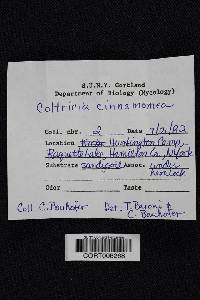 S.U.N.Y. Cortland
Department of Biology (Mycology)
Coltricia cinnamomea
Coll. nbr. 2 Date 7/2/83
Location Huntington Camp,
Raquette Lake, Hamilton Co., N.York
Substrate sandy soil Assoc. under
hemlock
Odor Taste
Coll C. Bouhofer Det. T. Baroni &
C. Bouhofer